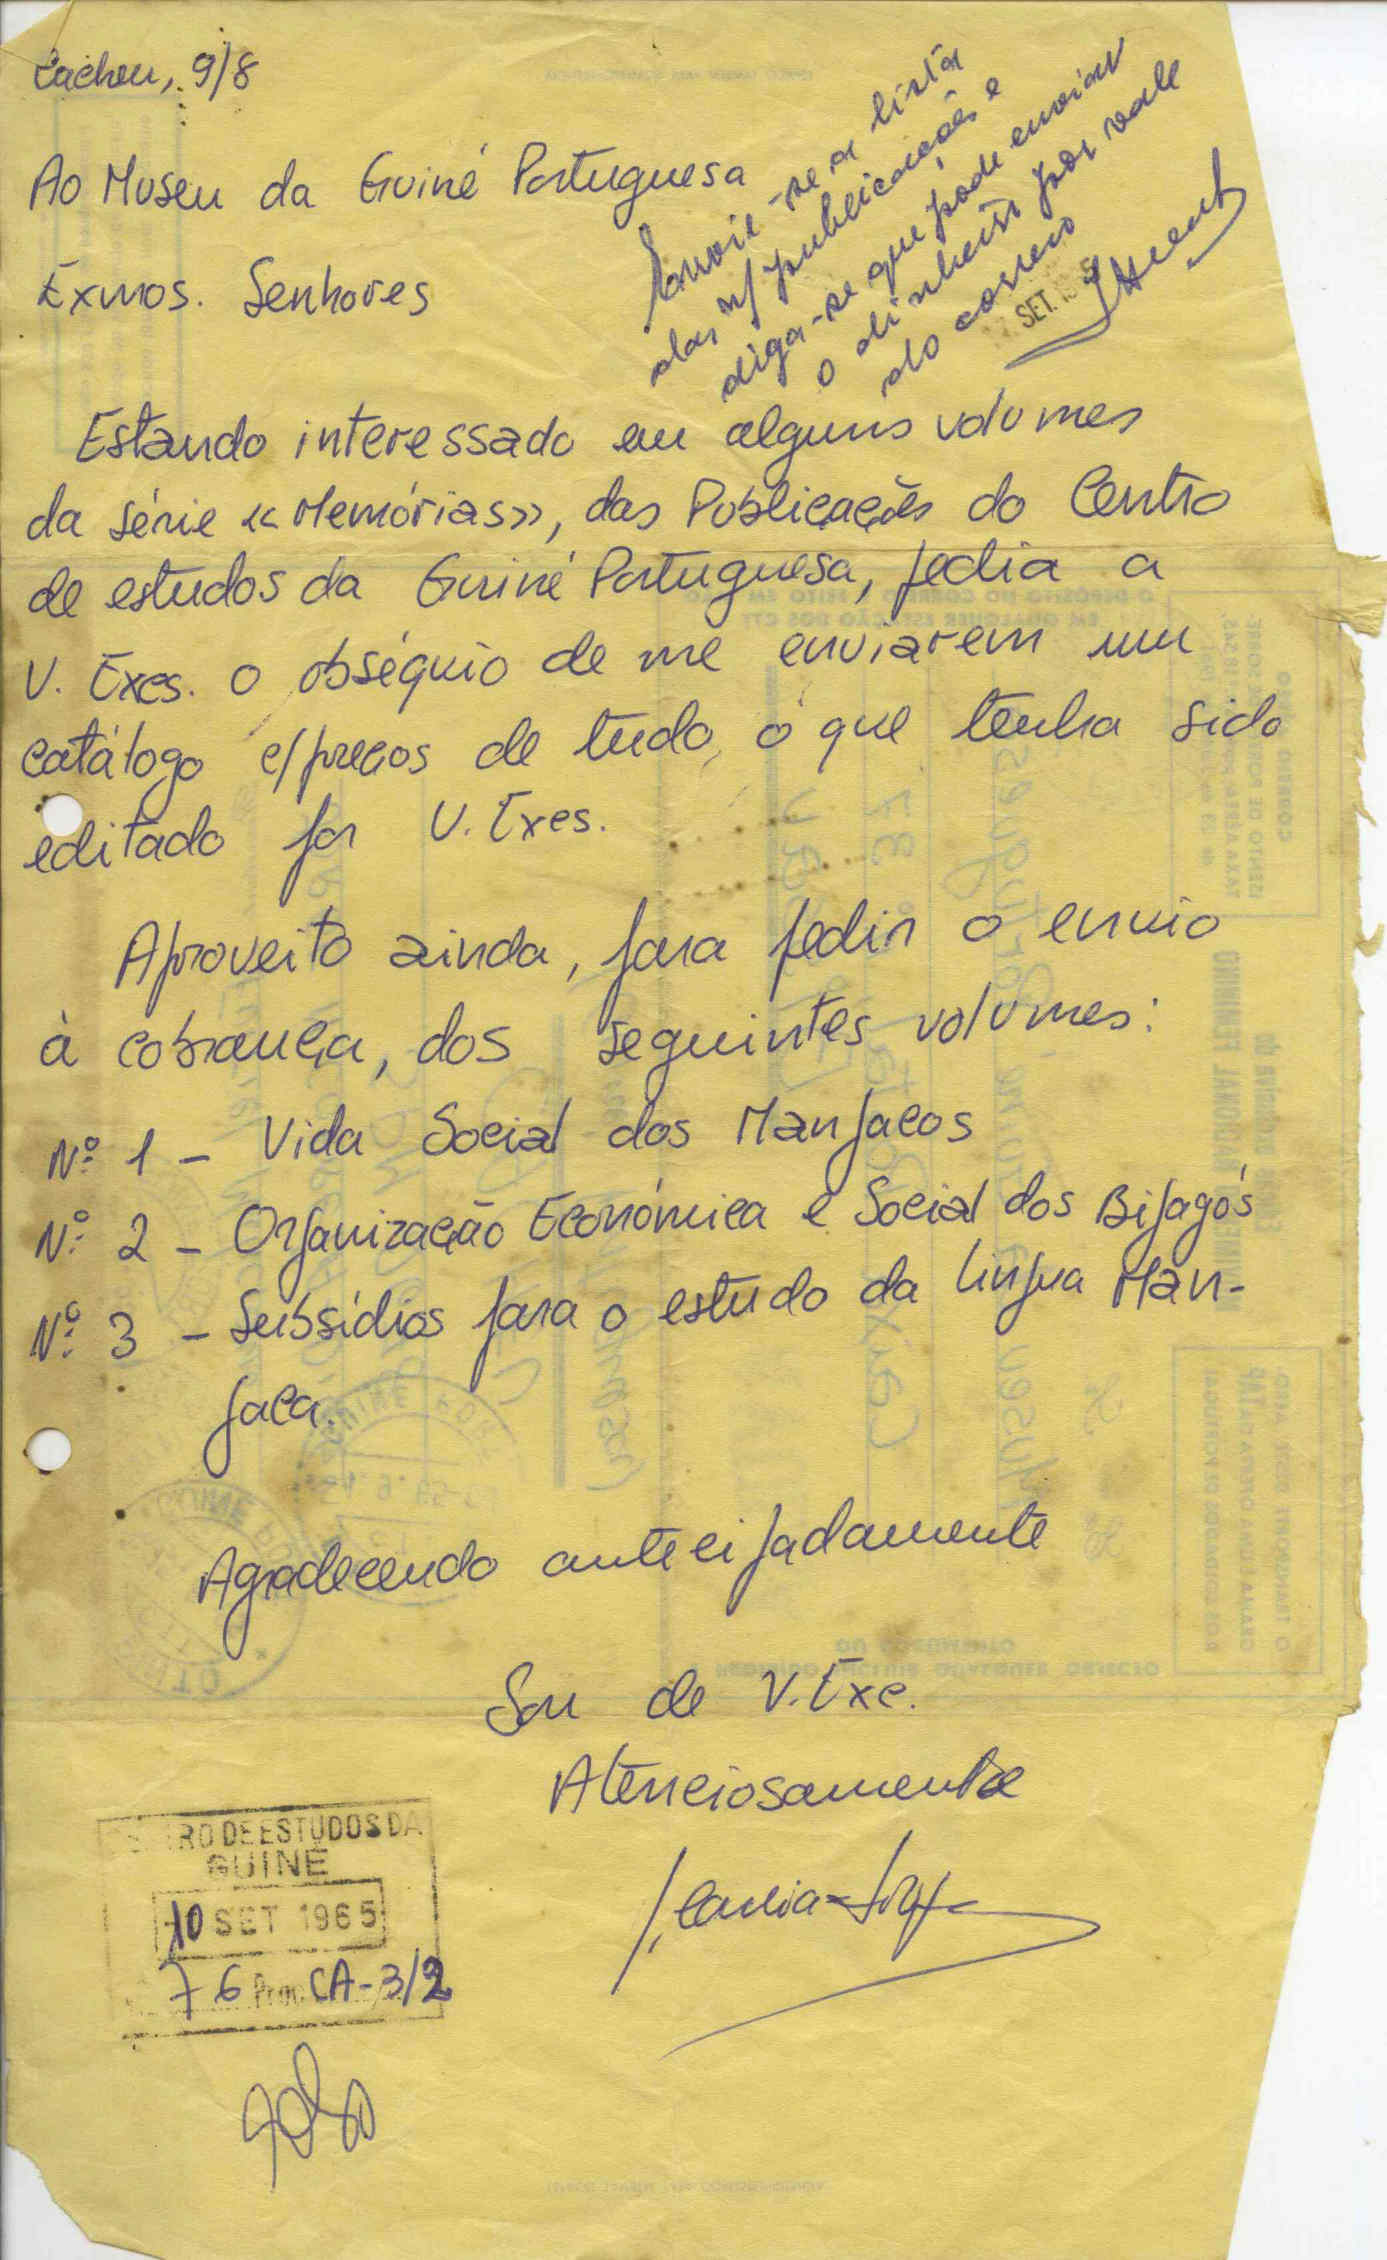 Cacheu, 9/8
Ao Museu da Guiné Portuguesa
Exmos. Senhores
Envie-se a lista
das n/ publicações e
diga-se que pode enviar
o dinheiro por vale
do correio
SET. 19
Estando interessado em alguns volumes
da série «Memórias», das Publicações do Centro
de estudos da Guiné Portuguesa, pedia a
V. Exes. o obséquio de me enviarem um
catálogo c/preços de tudo o que tenha sido
editado por V. Exes.
Aproveito ainda, para pedir o envio
à cobrança, dos seguintes volumes:
Nº 1 - Vida Social dos Manjacos
Nº 2 - Organização Económica e Social dos Bijagós
Nº 3 - Subsídios para o estudo da língua Man-
jaca.
Agradecendo antecipadamente
Sou de V. Exe.
Atenciosamente
CENTRO DE ESTUDOS DA
GUINÉ
10 SET 1965
76 Proc. CA-3/2